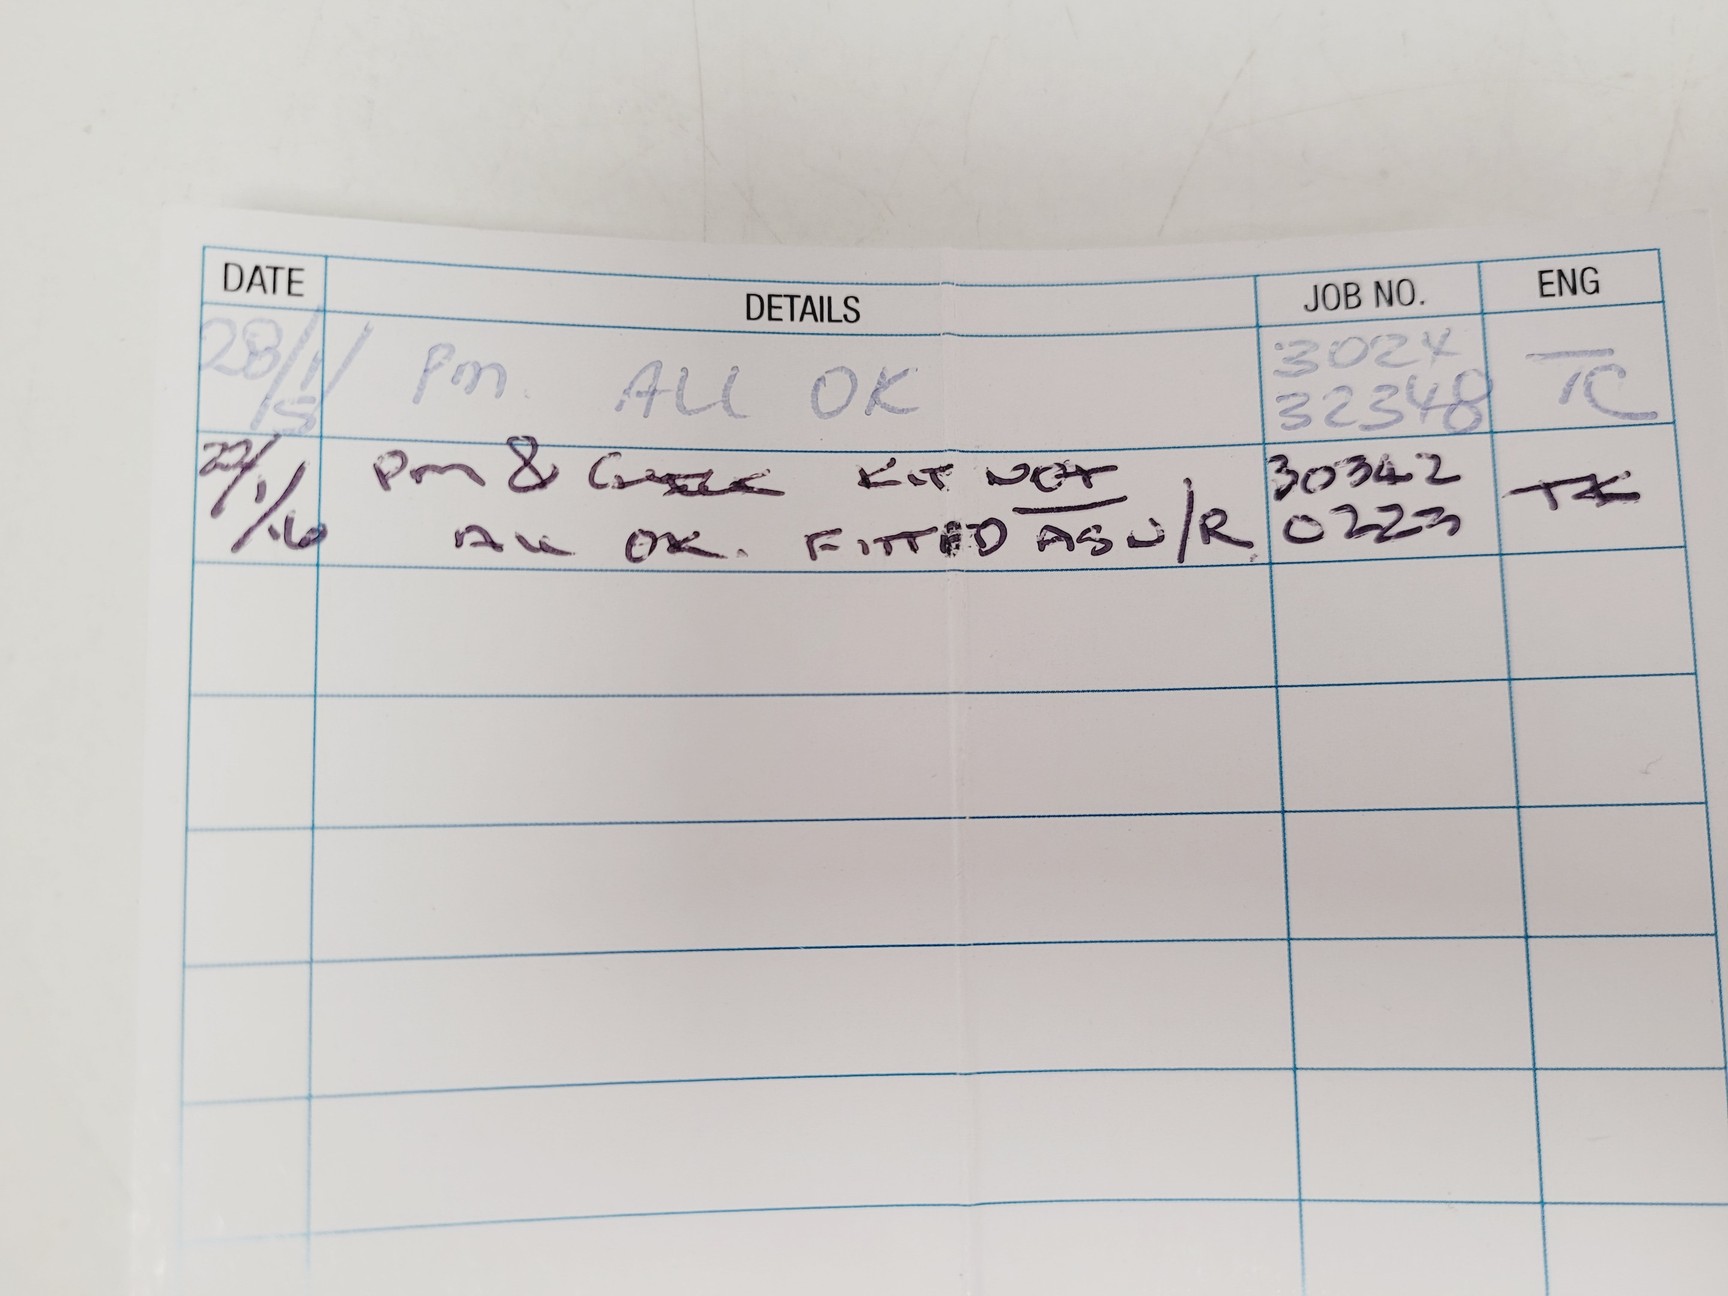 DATE DETAILS JOB NO. ENG
28/1/15 Pm. ALL OK 3024 32348 TC
22/1/16 Pm & KIT NOT 30342 TK
ALL OK. FITTED AS N/R. 0223